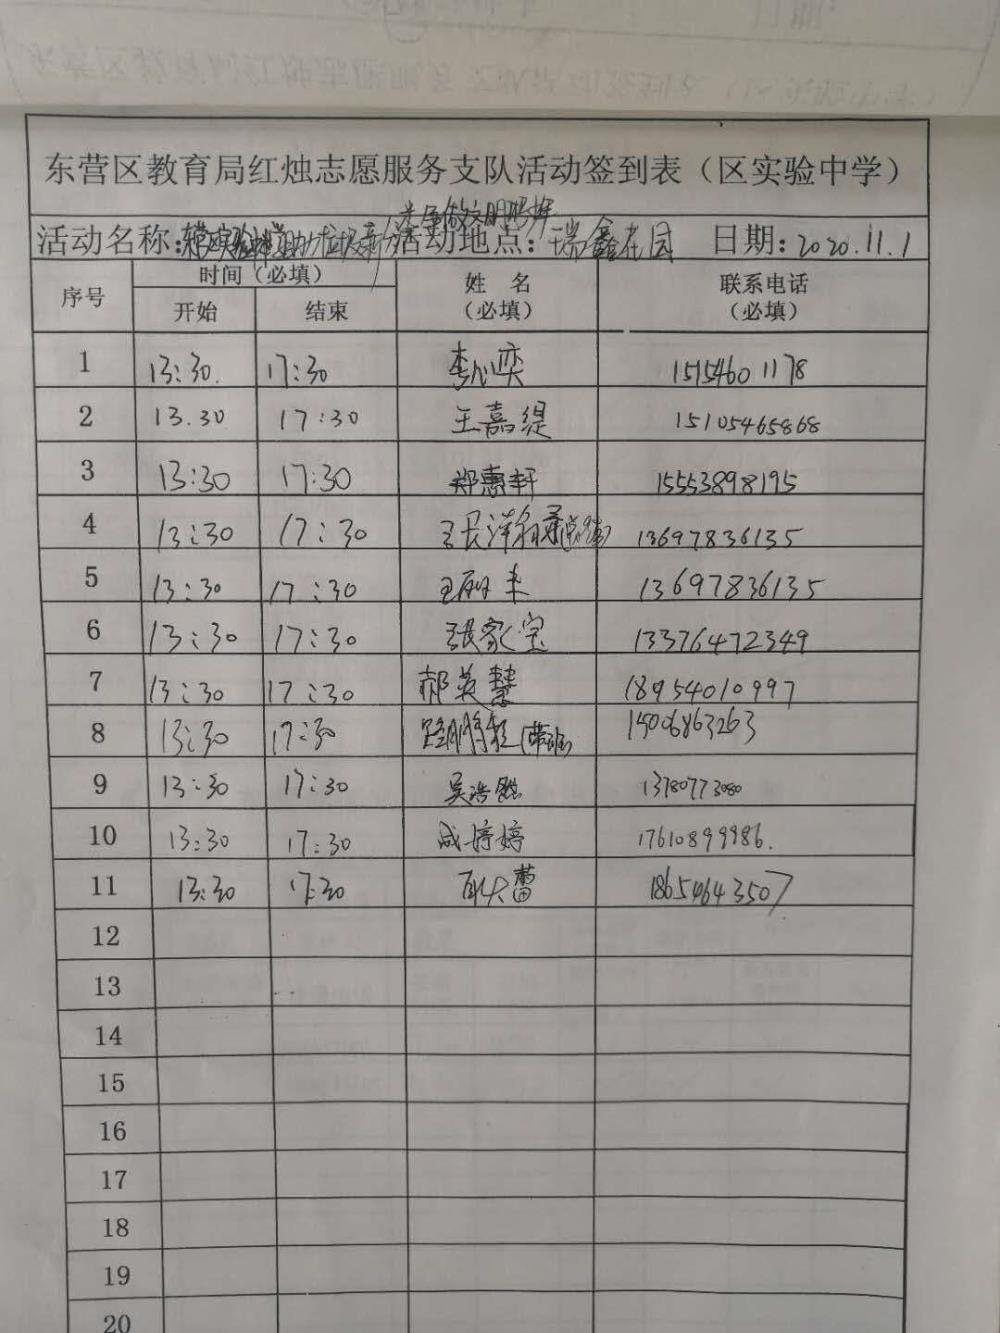 东营区教育局红烛志愿服务支队活动签到表（区实验中学）
活动名称: 活动地点: 瑞鑫花园 日期: 2020.11.1
序号 时间（必填） 姓 名 （必填） 联系电话 （必填）
开始 结束
1 13:30. 17:30 李心奕 15154601178
2 13.30 17:30 王嘉缇 15105465868
3 13:30 17:30 郑惠轩 15553898195
4 13:30 17:30 13697836135
5 13:30 17:30 13697836135
6 13:30 17:30 张家宝 13376472349
7 13:30 17:30 郝英慧 18954010997
8 13:30 17:30 15006863263
9 13:30 17:30 吴浩然 13780773080
10 13:30 17:30 成婷婷 17610899986.
11 13:30 17:30 耿蕾 18654643507
12
13
14
15
16
17
18
19
20